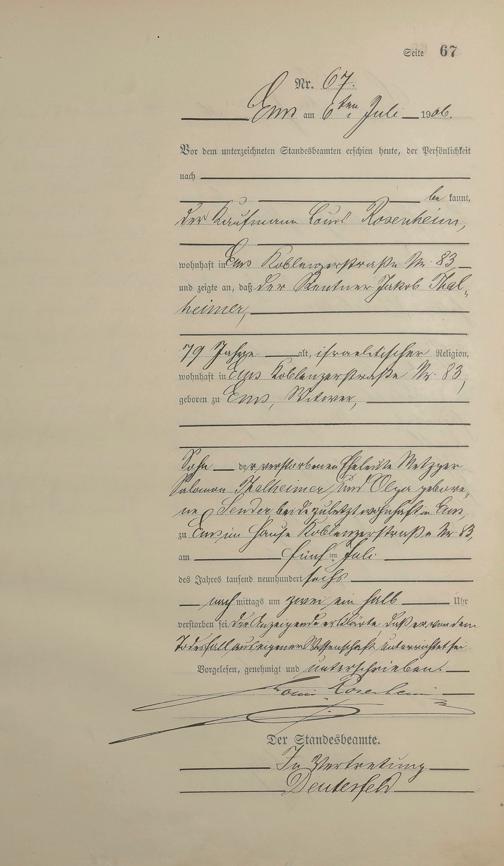 Seite 67
Nr. 67.
Ems am 6ten Juli 1906.
Vor dem unterzeichneten Standesbeamten erschien heute, der Persönlichkeit
nach
be kannt,
der Kaufmann Louis Rosenheim,
wohnhaft in Ems Koblenzerstraße Nr. 83
und zeigte an, daß der Rentner Jakob Thal-
heimer,
79 Jahre alt, israelitischer Religion,
wohnhaft in Ems Koblenzerstraße Nr. 83,
geboren zu Ems, Witwer,
Sohn der verstorbenen Eheleute Metzger
Salomon Thalheimer und Olga gebore-
ne Sender beide zuletzt wohnhaft in Ems,
zu Ems im Hause Koblenzerstraße Nr. 83,
am fünften Juli
des Jahres tausend neunhundert sechs
nach mittags um zwei ein halb Uhr
verstorben sei. Der Anzeigende erklärte, daß er von dem
Todesfall aus eigener Wissenschaft unterrichtet sei.
Vorgelesen, genehmigt und unterschrieben.
Louis Rosenheim
Der Standesbeamte.
In Vertretung